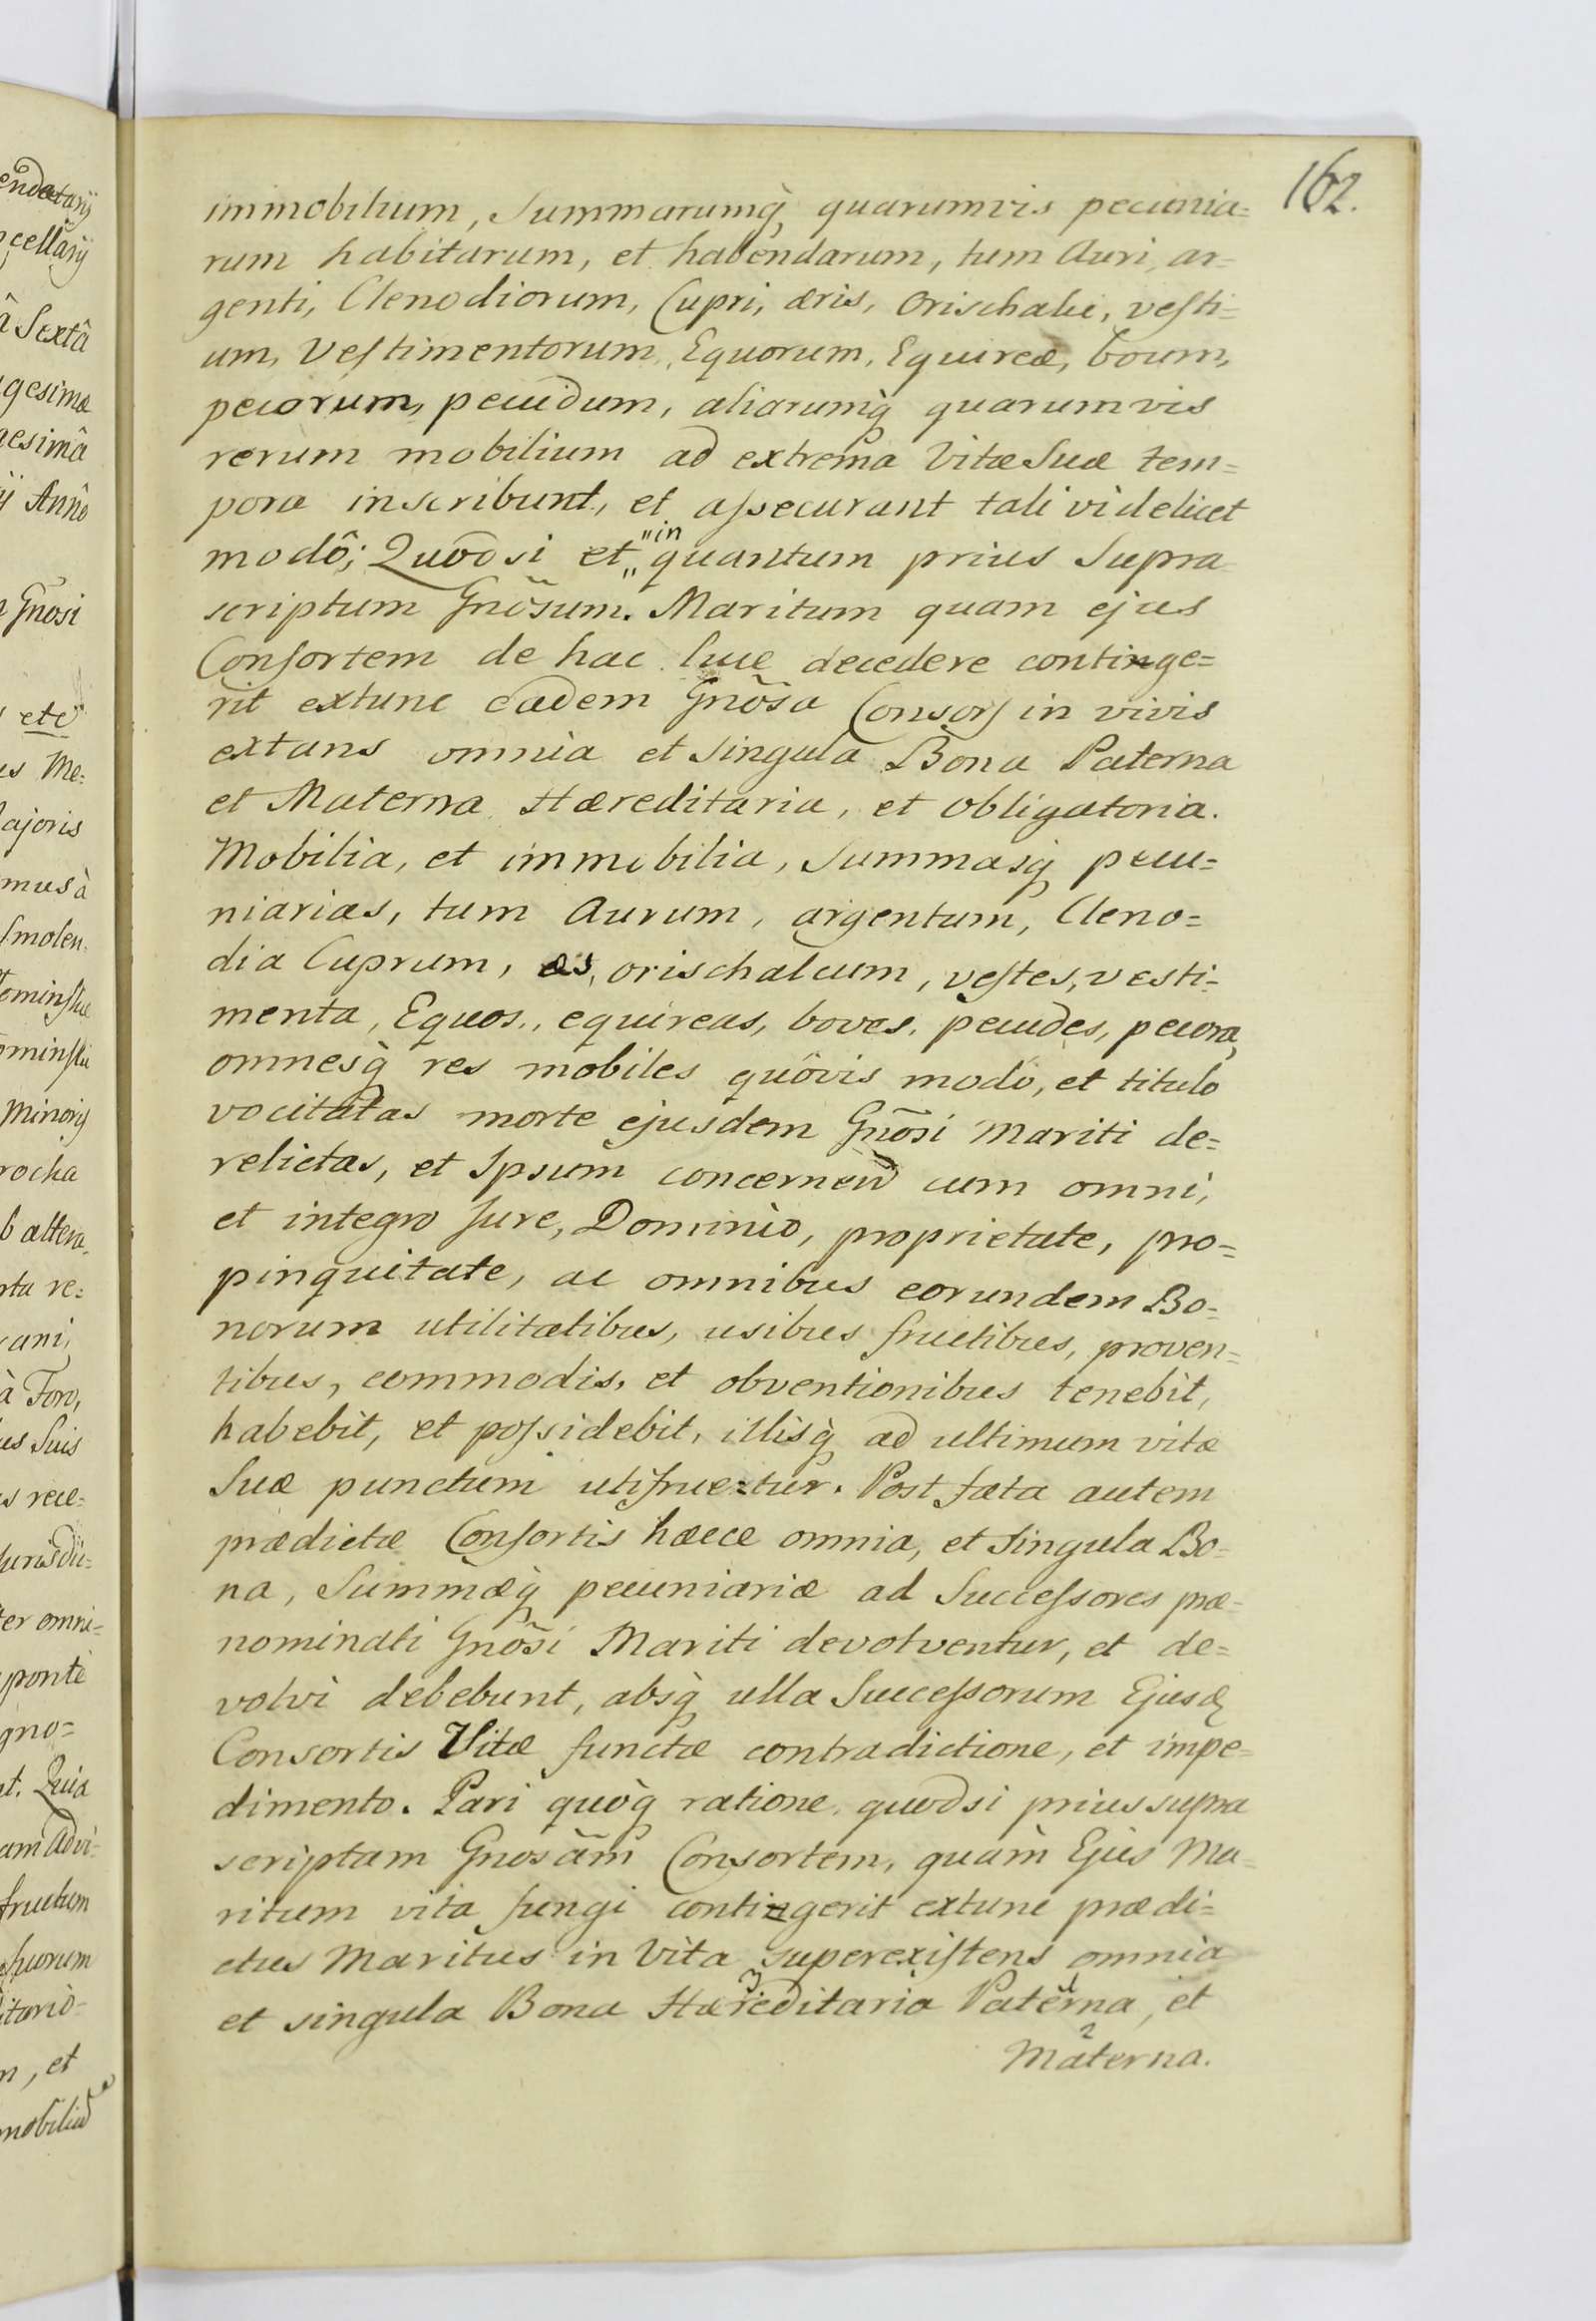 162.
immobilium, Summarumq̀ quarumvis pecunia=
rum habitarum, et habendarum, tum Auri, ar=
genti, Clenodiorum, Cupri, æris, Orischalci, vesti=
um, Vestimentorum, Equorum, Equireæ, boum,
pecorum, pecudum, aliarumq̀ quarumvis
rerum mobilium ad extrema Vitæ Suæ tem=
pora inscribunt, et assecurant tali videlicet
modô; Quodsi et "in„ quantum prius Supra
scriptum Gnõsum. Maritum quam ejus
Consortem de hac luce decedere continge=
rit extunc eadem Gnõsa Consors in vivis
extans omnia et singula Bona Paterna
et Materna Hæreditaria, et obligatoria.
Mobilia, et immobilia, Summasq̀ pecu=
niarias, tum Aurum, argentum, Cleno=
dia Cuprum, æs, orischalcum, vestes, vesti=
menta, Equos., equireas, boves, pecudes, pecora,
omnesq̀ res mobiles quôvis modo, et titulo
vocitatas morte ejusdem Gnõsi Mariti de=
relictas, et Ipsum concernen̄ cum omni,
et integro Jure, Dominio, proprietate, pro=
pinquitate, ac omnibus eorundem Bo=
norum utilitatibus, usibus fructibus, proven=
tibus, commodis, et obventionibus tenebit,
habebit, et possidebit, illisq̀ ad ultimum vitæ
Suæ punctum utifrue=tur. Post fata autem
prædictæ Consortis hæce omnia, et singula Bo=
na, Summæq̀ pecuniariæ ad Successores præ=
nominati Gnõsi Mariti devolventur, et de=
volvi debebunt, absq̀ ulla Successorum Ejusđ
Consortis Vitæ functæ contradictione, et impe=
dimento. Pari quòq̀ ratione quodsi prius supra
scriptam Gnosãm Consortem, quàm Ejus Ma=
ritum vita fungi contingerit extunc prædi=
ctus Maritus in Vita superexistens omnia
et singula Bona Hæ3reditaria Pate1rna, et
Ma2terna.